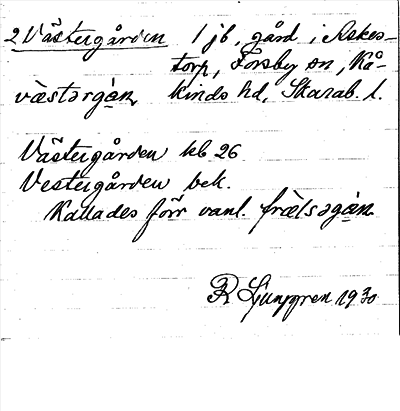 2 Västergården 1 jb, gård i Åkes-
torp, Forsby sn, Kå-
västərgàn, kinds hd, Skarab. l.
Västergården kb 26
Vestergården bek.
Kallades förr vanl. frälsəgàn.
R Ljunggren 1930